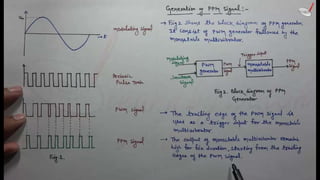 Generation of PPM Signal:-
Vm
t
Modulating Signal
Periodic
Pulse Train
PWM Signal
PPM Signal
Fig 1.
→ Fig 2. Shows the block diagram of PPM generator.
It consist of PWM generator followed by the
Monostable multivibrator.
Modulating
Signal
PWM
Generator
Trigger input
Monostable
Multivibrator
PPM
Signal
Fig 2. Block diagram of PPM
Generator
→ The trailing edge of the PWM signal is
used as a trigger input for the monostable
multivibrator
→ The output of monostable multivibrator remains
high for fix duration, starting from the trailing
edges of the PWM signal.